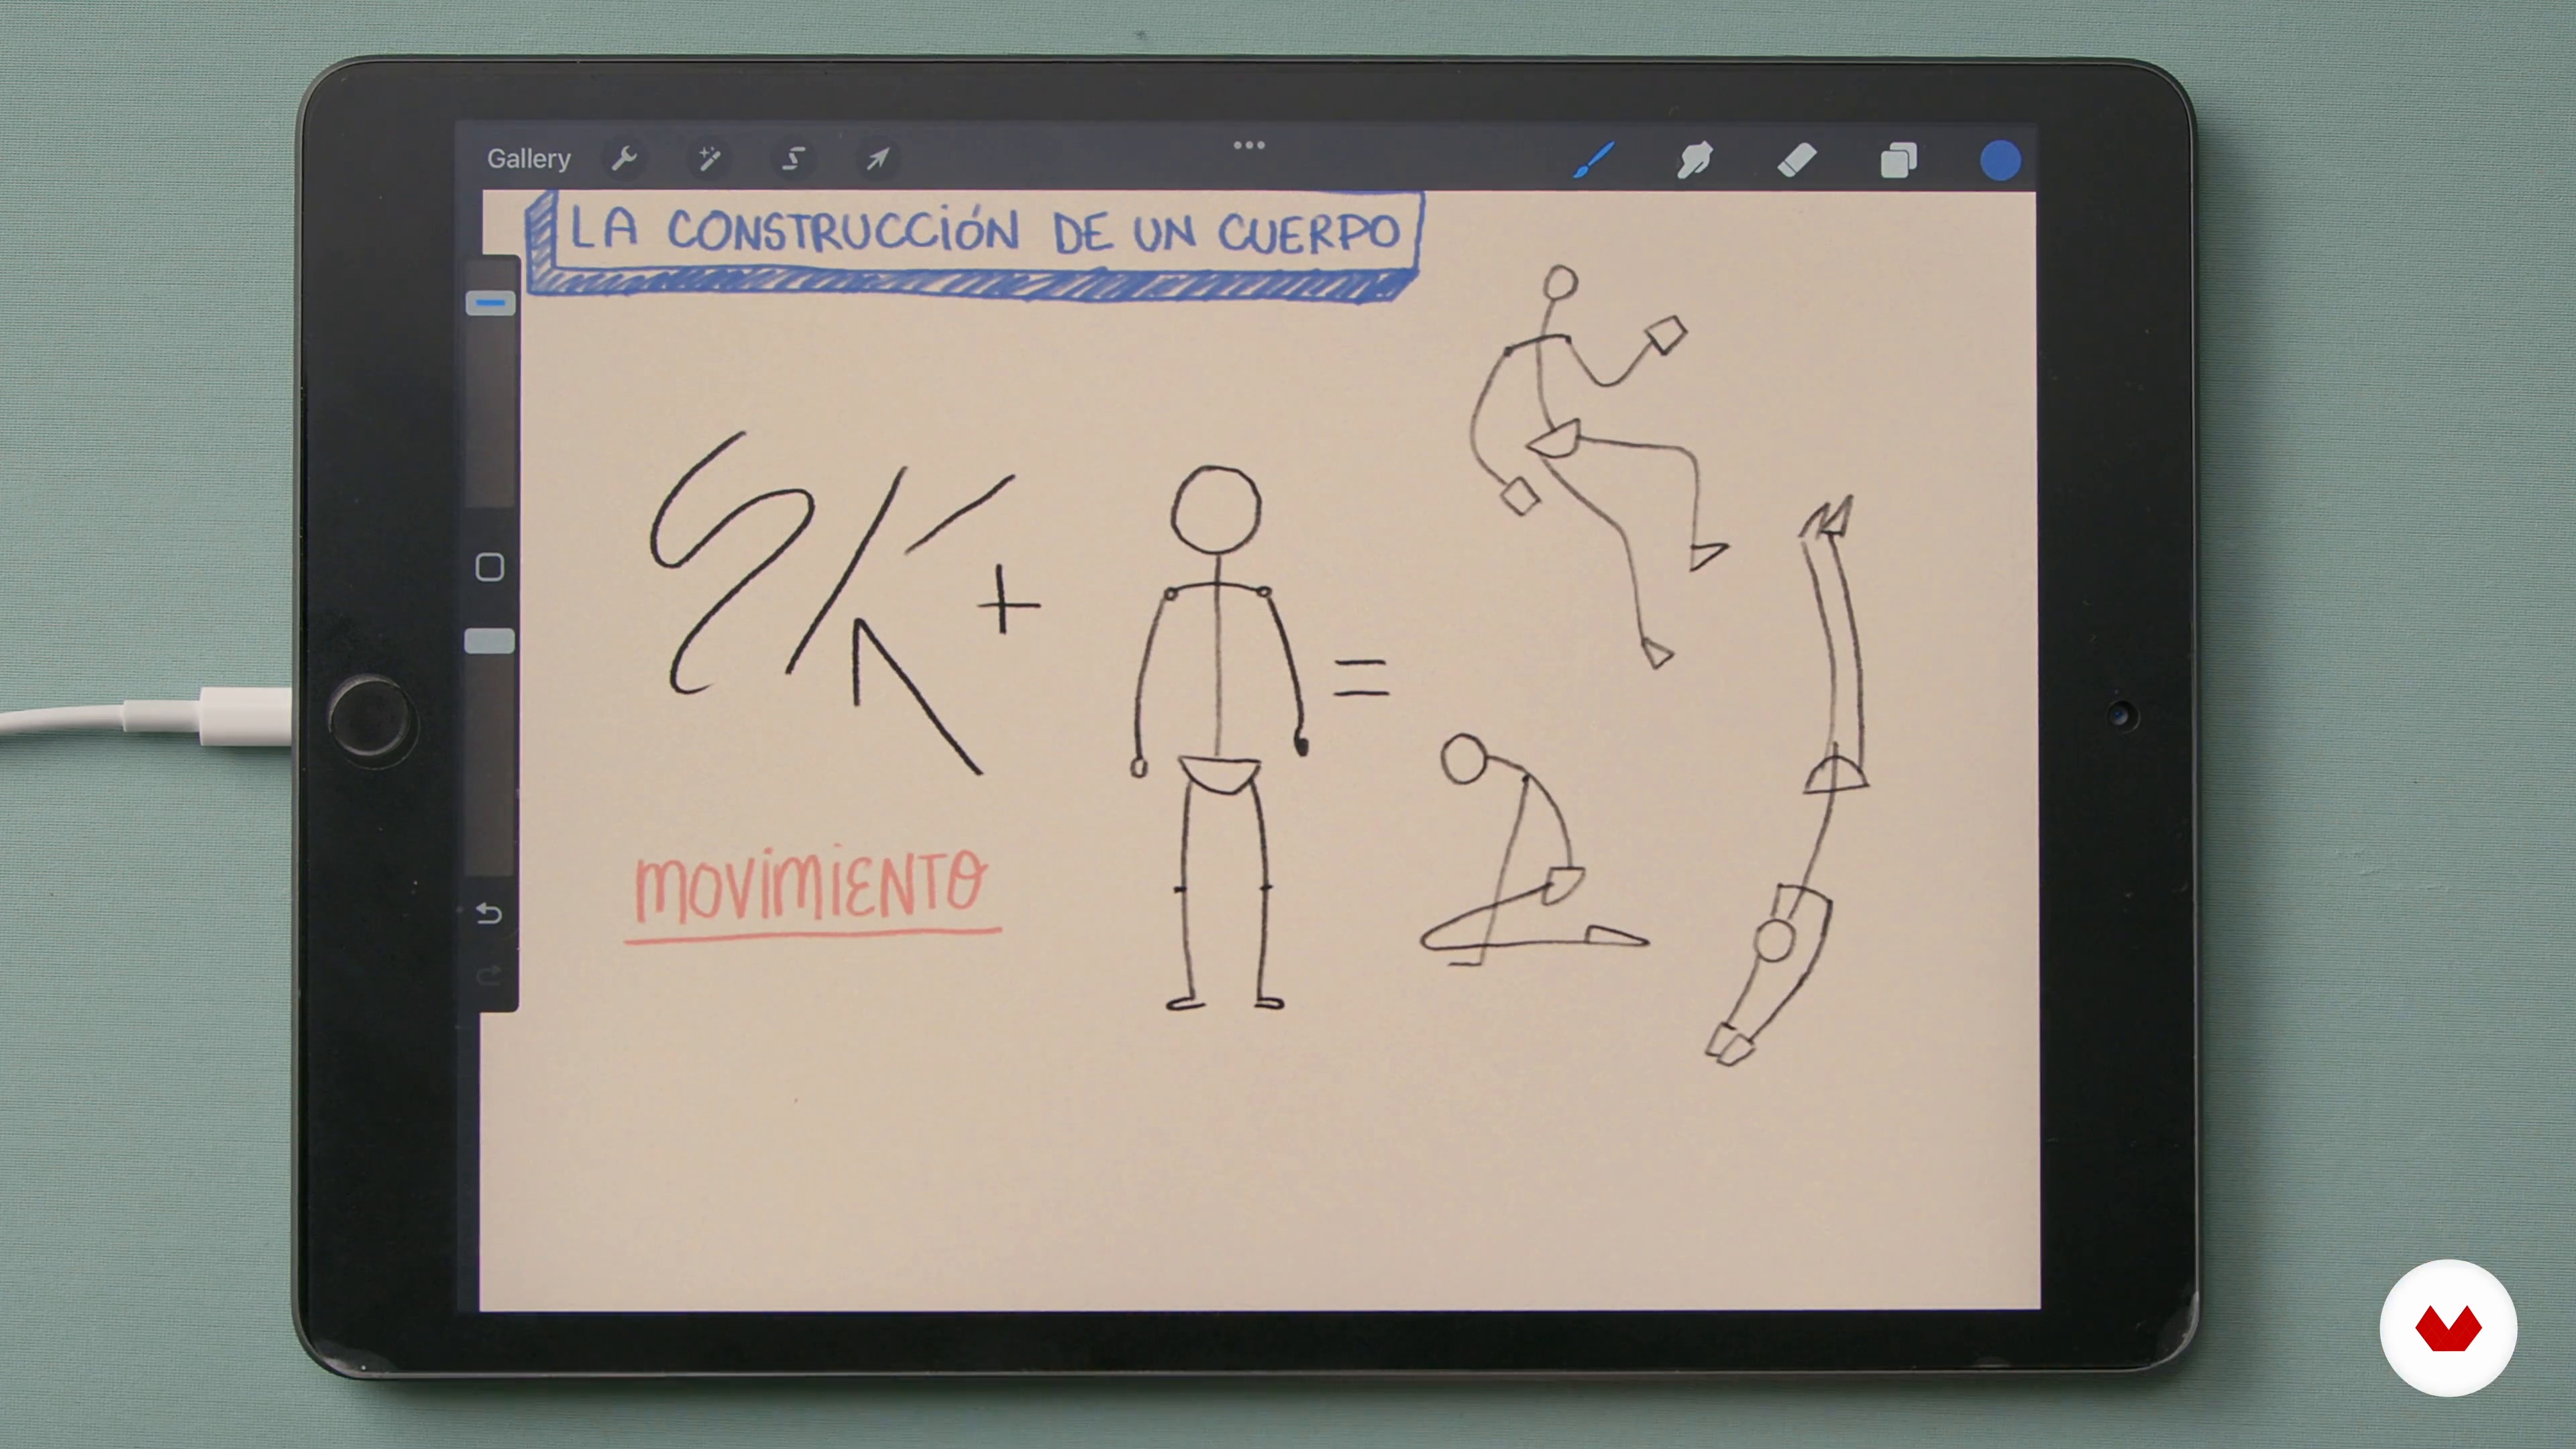 Gallery
LA CONSTRUCCIÓN DE UN CUERPO
+
=
MOVIMIENTO